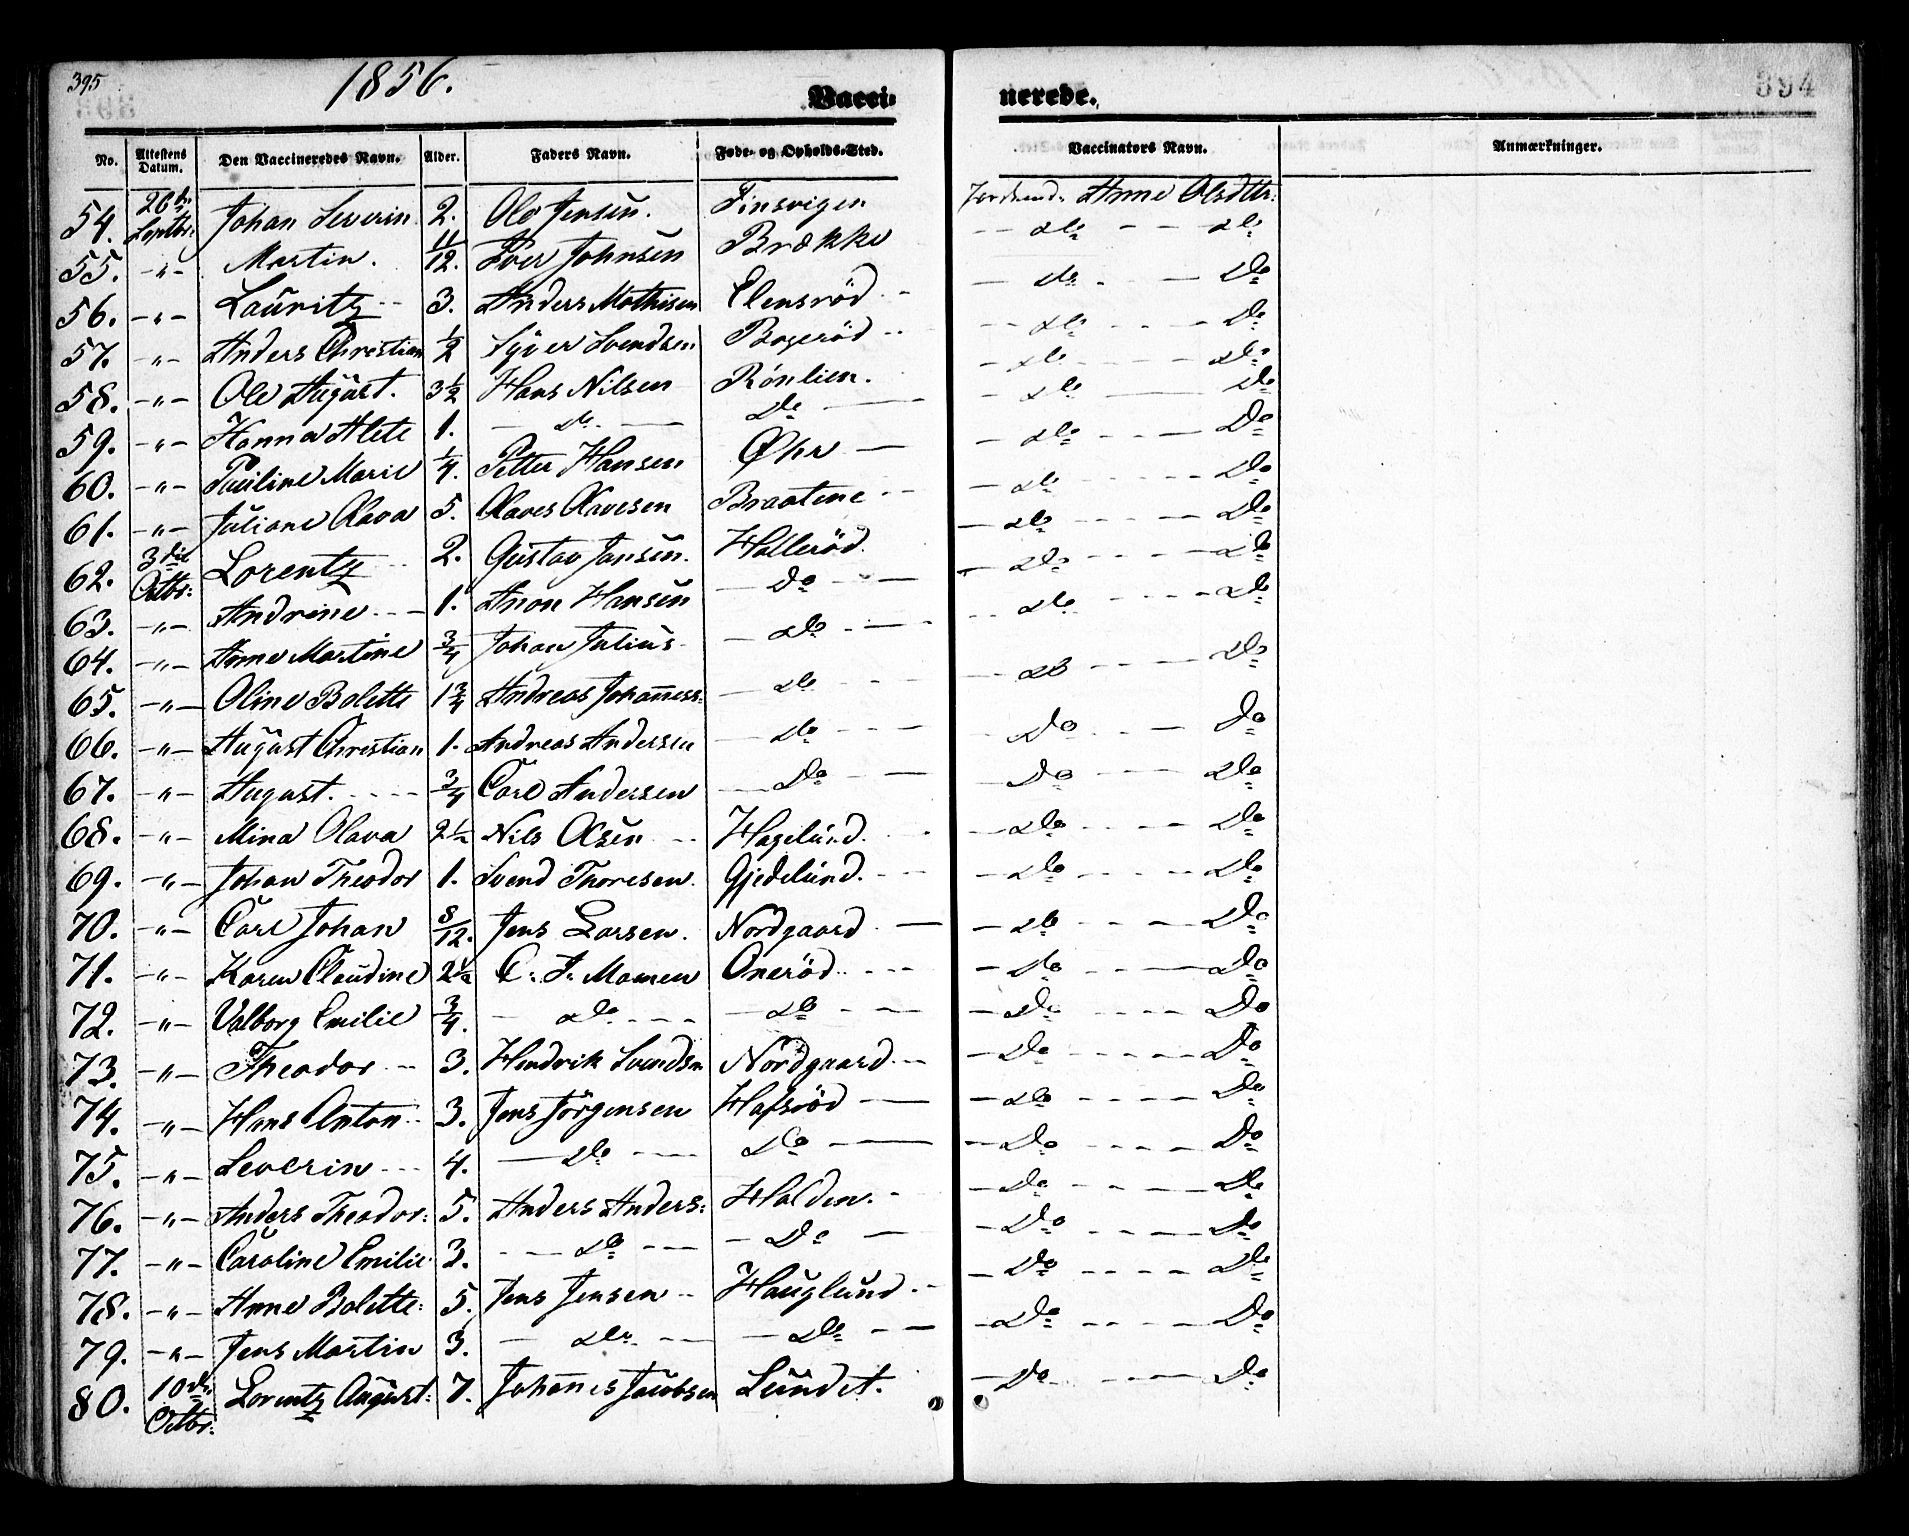 395
1856.
Vacci-
nerede.
394
No. Attestens Datum. Den Vaccineredes Navn. Alder. Faders Navn. Føde- og Opholds-Sted. Vaccinators Navn. Anmærkninger.
54. 26de Septbr: Johan Severin 2. Ole Jensen. Finsvigen Jordmod. Anne Olsdtr:
55. -"- Martin. 11/12. Iver Johnsen Brække do do
56. -"- Lauritz 3. Anders Mathisen Elensrød do Do
57. -"- Anders Christian 1/2 Syver Svendsen Bogerød do Do
58. -"- Ole August. 3 1/2 Hans Nilsen Rönlien. do do
59. -"- Hanna Alete 1. do Do do Do
60. -"- Pauline Marie 1/4. Petter Hansen Øhr do Do
61. -"- Juliane Olava 5. Olaves Olavesen Braatene do Do
62. 3die Octbr: Lorentz 2. Gustav Jansen. Hollerød. do do
63. -"- Andrine 1. Anon Hansen Do do do
64. -"- Anne Martine 3/4 Johan Julius do do do
65. -"- Oline Bolette 1 3/4 Andreas Johanness: do do do
66. -"- August Christian 1. Andreas Andersen do Do Do
67. -"- August. 3/4 Carl Andersen Do Do do
68. -"- Mina Olava 2 1/2 Nils Olsen Hagelund. do Do
69. -"- Johan Theodor 1. Svend Thoresen. Gjedelund. do do
70. -"- Carl Johan 8/12. Jens Larsen. Nordgaard do Do
71. -"- Karen Claudine 2 1/2 C. J. Momen Onerød do Do
72. -"- Valborg Emilie 3/4. do do Do Do
73. -"- Theodor 3. Hendrik Svendsn Nordgaard Do Do
74. -"- Hans Anton 3. Jens Jörgensen Hafsröd do Do
75. -"- Severin 4. Do Do Do Do
76. -"- Anders Theodor: 5. Anders Anders: Holden. Do Do
77. -"- Caroline Emilie 3. do Do Do Do
78. -"- Anne Bolette: 5. Jens Jensen Hauglund Do Do
79. -"- Jens Martin 3. do Do Do Do
80. 10de Octbr: Lorentz August: 7. Johannes Jacobsen Lundet. Do Do